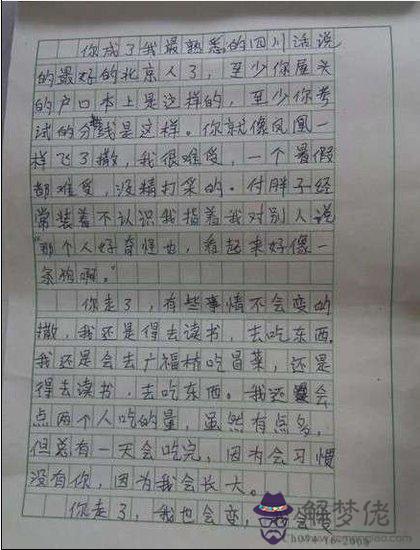 你成了我最熟悉的四川话说
的最好的北京人了，至少你屋头
的户口本上是这样的，至少你考
试的分数线是这样。你就像凤凰一
样飞了撒，我很难受，一个暑假
都难受，没精打采的。付胖子经
常装着不认识我指着我对别人说
“那个人好奇怪也，看起来好像一
条狗啊。”
你走了，有些事情不会变的
撒，我还是得去读书，去吃东西。
我还是会去广福桥吃冒菜，还是
得去读书，去吃东西。我还会
点两个人吃的量，虽然有点多，
但总有一天会吃完，因为会习惯
没有你，因为我会长大。
你走了，我也会变，
解梦佬